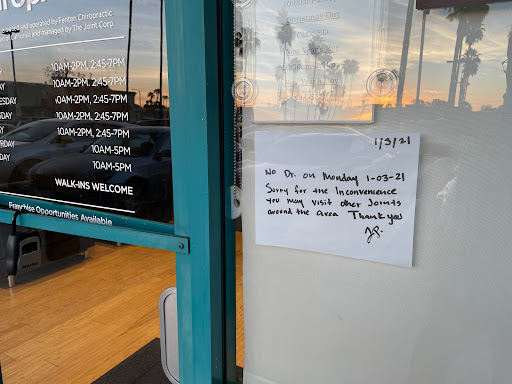 owned and operated by Fenton Chiropractic
and managed by The Joint Corp.
10AM-2PM, 2:45-7PM
10AM-2PM, 2:45-7PM
10AM-2PM, 2:45-7PM
10AM-2PM, 2:45-7PM
10AM-2PM, 2:45-7PM
10AM-5PM
10AM-5PM
WALK-INS WELCOME
Franchise Opportunities Available
Christmas Day
1/3/21
No Dr. on Monday 1-03-21
Sorry for the Inconvenience
you may visit other Joints
around the area Thank you